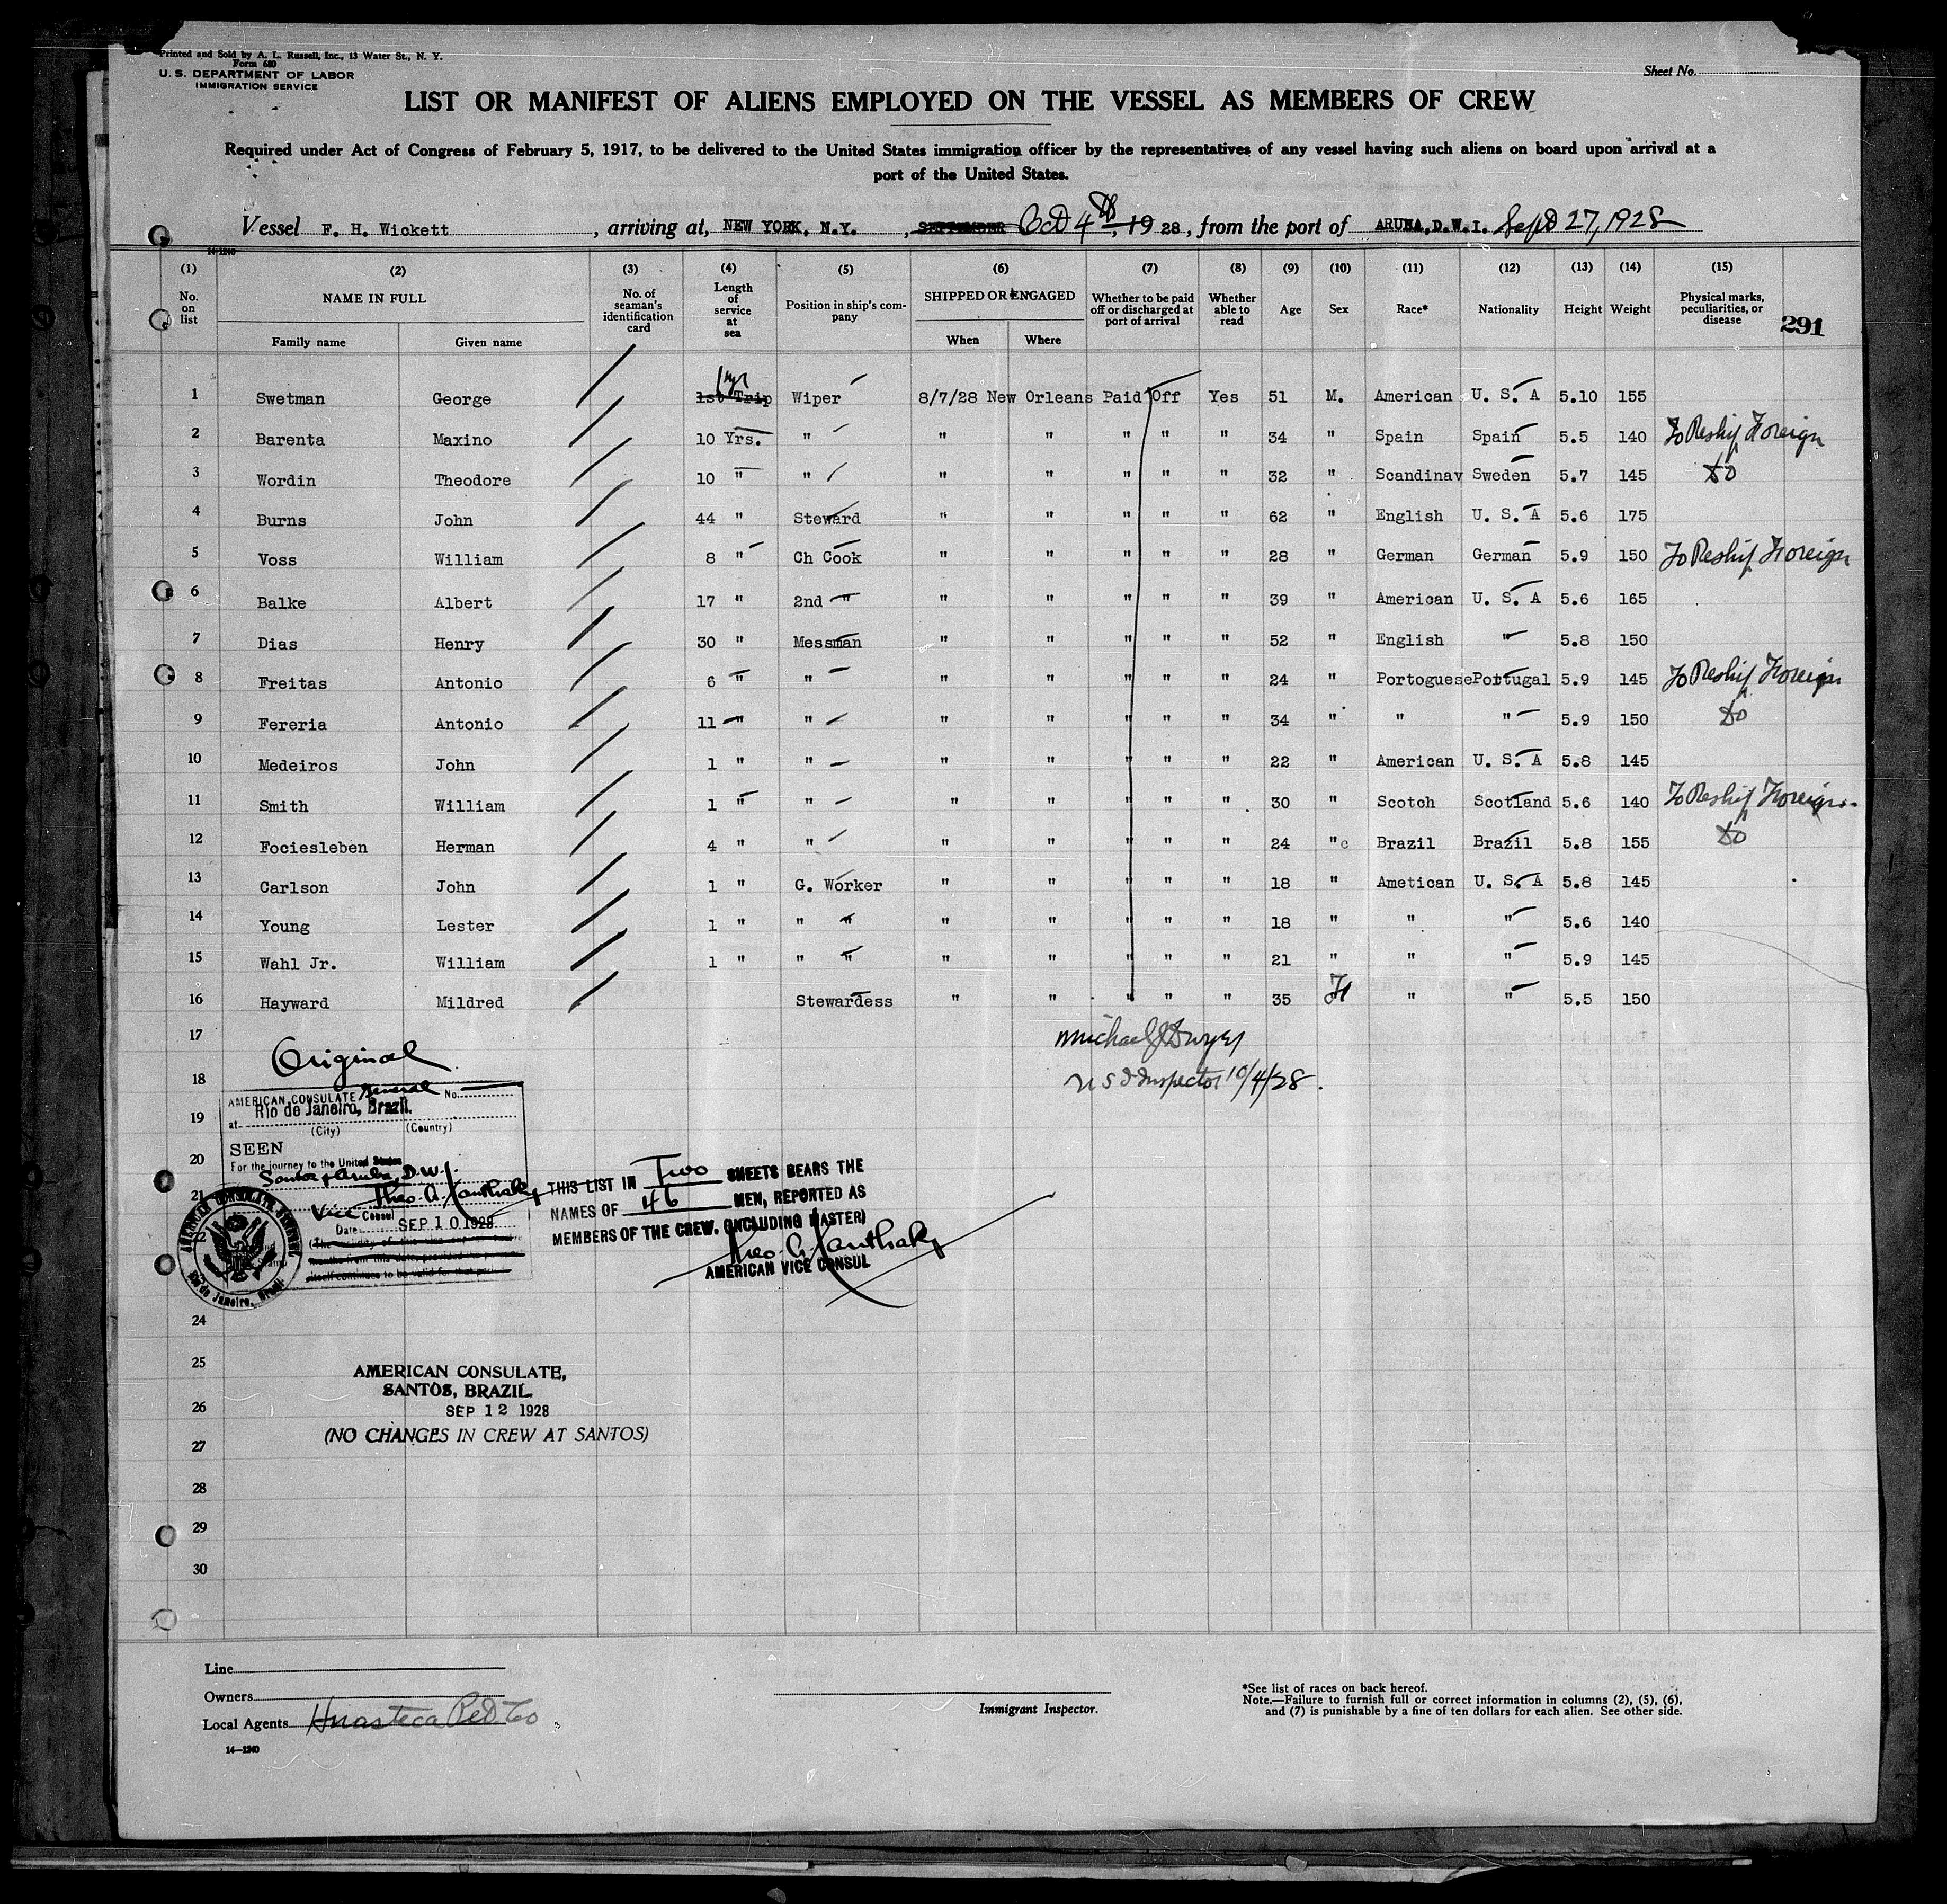 Printed and Sold by A. L. Russell, Inc., 13 Water St., N. Y.
Form 680
U. S. DEPARTMENT OF LABOR
IMMIGRATION SERVICE
Sheet No.
LIST OR MANIFEST OF ALIENS EMPLOYED ON THE VESSEL AS MEMBERS OF CREW
Required under Act of Congress of February 5, 1917, to be delivered to the United States immigration officer by the representatives of any vessel having such aliens on board upon arrival at a
port of the United States.
Vessel F. H. Wickett, arriving at, NEW YORK, N.Y., SEPTEMBER Oct 4th, 1928, from the port of ARUBA, D.W.I. Sept 27, 1928
14-1240
(1) (2) (3) (4) (5) (6) (7) (8) (9) (10) (11) (12) (13) (14) (15)
No. on list NAME IN FULL Family name Given name No. of seaman's identification card Length of service at sea Position in ship's company SHIPPED OR ENGAGED When Where Whether to be paid off or discharged at port of arrival Whether able to read Age Sex Race* Nationality Height Weight Physical marks, peculiarities, or disease
291
1 yr
1 Swetman George 1st Trip Wiper 8/7/28 New Orleans Paid Off Yes 51 M. American U. S. A 5.10 155
2 Barenta Maxino 10 Yrs. " " " " " " 34 " Spain Spain 5.5 140 To Reship Foreign
3 Wordin Theodore 10 " " " " " " " 32 " Scandinav Sweden 5.7 145 do
4 Burns John 44 " Steward " " " " " 62 " English U. S. A 5.6 175
5 Voss William 8 " Ch Cook " " " " " 28 " German German 5.9 150 To Reship Foreign
6 Balke Albert 17 " 2nd " " " " " " 39 " American U. S. A 5.6 165
7 Dias Henry 30 " Messman " " " " " 52 " English " 5.8 150
8 Freitas Antonio 6 " " " " " " " 24 " Portoguese Portugal 5.9 145 To Reship Foreign
9 Fereria Antonio 11 " " " " " " " 34 " " " 5.9 150 do
10 Medeiros John 1 " " " " " " " 22 " American U. S. A 5.8 145
11 Smith William 1 " " " " " " " 30 " Scotch Scotland 5.6 140 To Reship Foreign
12 Fociesleben Herman 4 " " " " " " " 24 " c Brazil Brazil 5.8 155 do
13 Carlson John 1 " G. Worker " " " " " 18 " Ametican U. S. A 5.8 145
14 Young Lester 1 " " " " " " " " 18 " " " 5.6 140
15 Wahl Jr. William 1 " " " " " " " " 21 " " " 5.9 145
16 Hayward Mildred Stewardess " " " " " 35 F " " 5.5 150
17
Michael J Dwyer
Original
18
U S I Inspector 10/4/28.
AMERICAN CONSULATE General No.
Rio de Janeiro, Brazil.
19
at (City) (Country)
SEEN
20
For the journey to the United States
Santos, Aruba, D.W.I.
21
Theo. A. Xanthaky
Vice Consul
Date SEP 10 1928
AMERICAN CONSULATE GENERAL
Rio de Janeiro, Brazil
THIS LIST IN Two SHEETS BEARS THE
NAMES OF 46 MEN, REPORTED AS
MEMBERS OF THE CREW. (INCLUDING MASTER)
Theo. A. Xanthaky
AMERICAN VICE CONSUL
24
25
AMERICAN CONSULATE,
SANTOS, BRAZIL.
26
SEP 12 1928
(NO CHANGES IN CREW AT SANTOS)
27
28
29
30
Line
Owners
Local Agents Huasteca Pet Co
14—1240
Immigrant Inspector.
*See list of races on back hereof.
Note.—Failure to furnish full or correct information in columns (2), (5), (6),
and (7) is punishable by a fine of ten dollars for each alien. See other side.